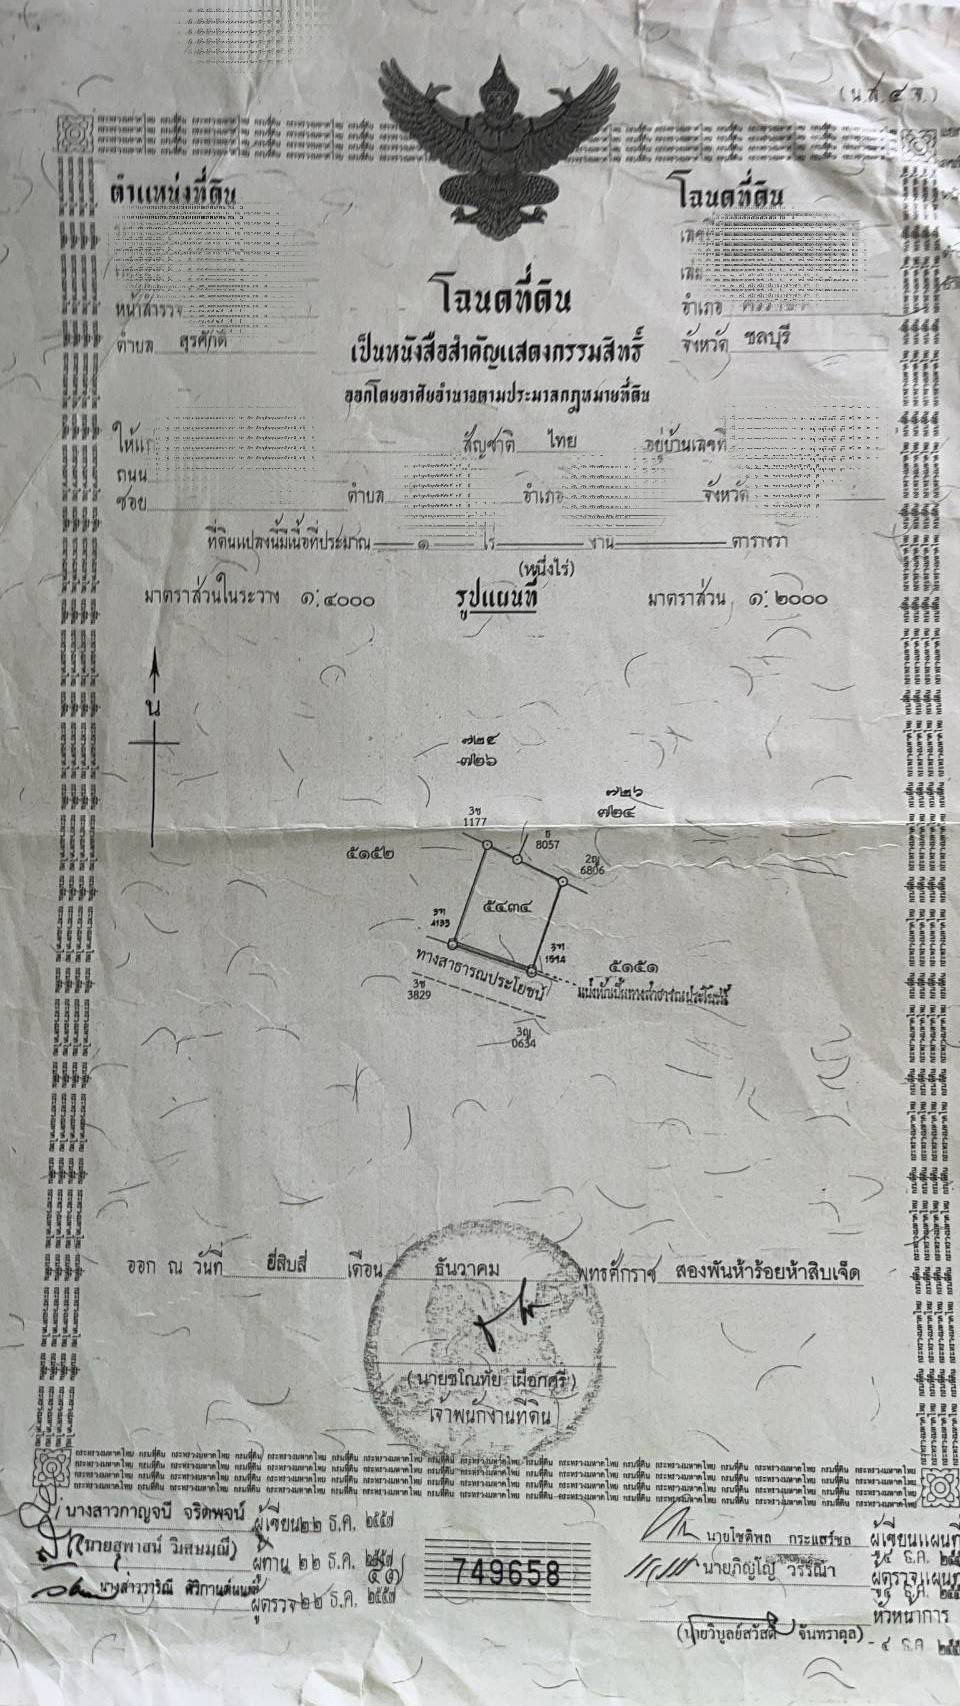 (น.ส.๔ จ.)
ตำแหน่งที่ดิน
โฉนดที่ดิน
หน้าสำรวจ
ตำบล สุรศักดิ์
อำเภอ
จังหวัด ชลบุรี
โฉนดที่ดิน
เป็นหนังสือสำคัญแสดงกรรมสิทธิ์
ออกโดยอาศัยอำนาจตามประมวลกฎหมายที่ดิน
สัญชาติ ไทย อยู่บ้านเลขที่
ถนน
ซอย ตำบล อำเภอ จังหวัด
ที่ดินแปลงนี้มีเนื้อที่ประมาณ ๑ ไร่ งาน ตารางวา
(หนึ่งไร่)
มาตราส่วนในระวาง ๑:๔๐๐๐ รูปแผนที่ มาตราส่วน ๑:๒๐๐๐
น
๗๒๕
๗๒๖
๗๒๖
๗๒๔
3ช
1177
8057
๕๑๕๒
2ญ
6806
๕๔๓๔
4133
1514
๕๑๕๑
ทางสาธารณประโยชน์
แบ่งหักเป็นทางสาธารณประโยชน์
3ช
3829
3ญ
0634
ออก ณ วันที่ ยี่สิบสี่ เดือน ธันวาคม พุทธศักราช สองพันห้าร้อยห้าสิบเจ็ด
(นายชโณทัย เผือกศรี)
เจ้าพนักงานที่ดิน
นางสาวกาญจนี จริตพจน์ ผู้เขียน ๒๒ ธ.ค. ๒๕๕๗
(นายสุพาสน์ วิเศษมุณี) ผู้ทาน ๒๒ ธ.ค. ๒๕๕๗
ผู้ตรวจ ๒๒ ธ.ค. ๒๕๕๗
749658
นายโชติพล กระแสร์ชล ผู้เขียนแผนที่
นายภิญโญ วรรณา ผู้ตรวจแผนที่
(นายวิบูลย์สวัสดิ์ จันทราดุล)